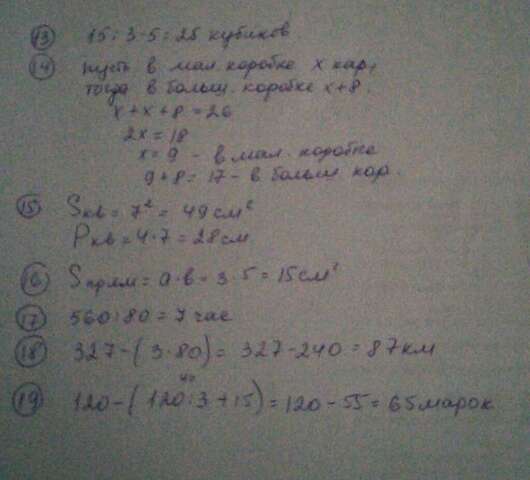 13 15:3·5=25 кубиков
14 пусть в мал. коробке х кар,
тогда в больш. коробке х+8.
х+х+8=26
2х=18
х=9 - в мал. коробке
9+8=17- в больш кар.
15 Sкв=7²=49см²
Ркв=4·7=28см
16 Sпрям=a·b=3·5=15см²
17 560:80=7 час
18 327-(3·80)=327-240=87км
40
19 120-(120:3+15)=120-55=65марок